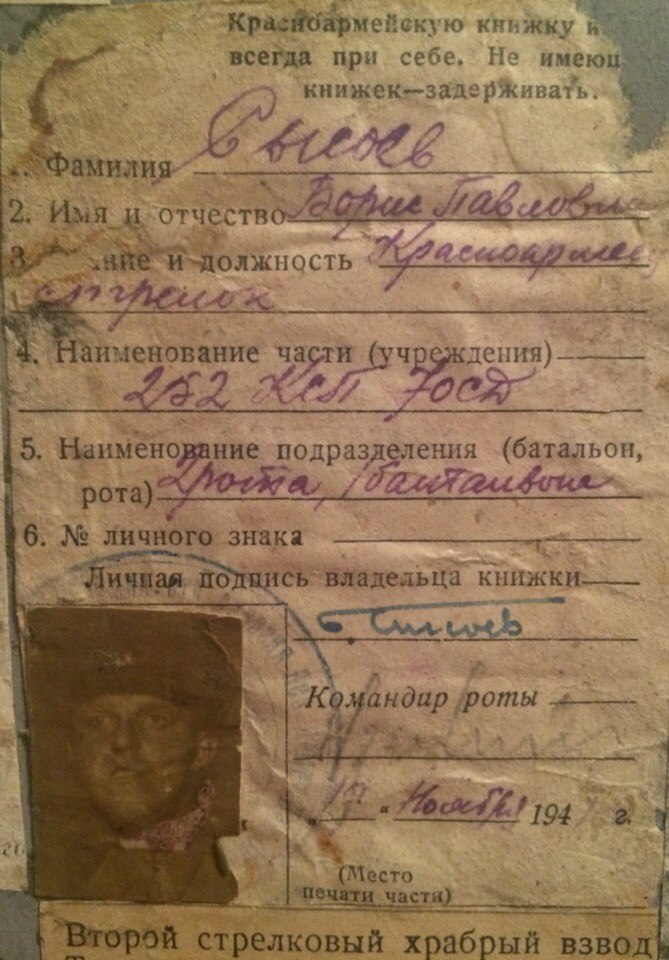 Красноармейскую книжку и
всегда при себе. Не имеющ
книжек—задерживать.
1. Фамилия Сысоев
2. Имя и отчество Борис Павлови
3 ание и должность Красноармее
стрелок
4. Наименование части (учреждения)
252 КСП 70СД
5. Наименование подразделения (батальон,
рота) 2 рота, 1 батальона
6. № личного знака
Личная подпись владельца книжки
Б. Сысоев
Командир роты
„ “ Ноября 194 г.
(Место
печати части)
Второй стрелковый храбрый взвод